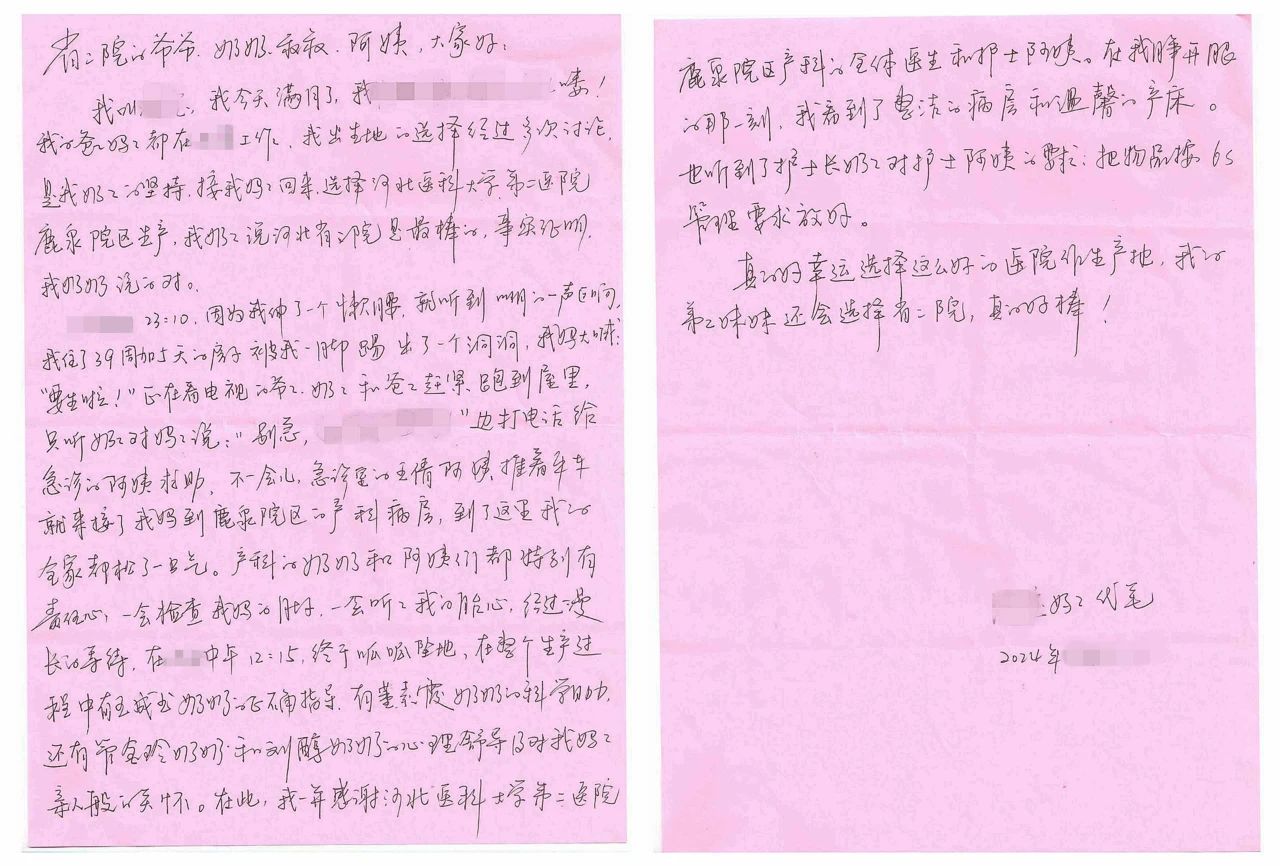 省二院的爷爷、奶奶、叔叔、阿姨，大家好：
我叫，我今天满月了，我喽！
我的爸爸妈妈都在工作，我出生地的选择经过多次讨论，
是我奶奶的坚持，接我妈妈回来，选择河北医科大学第二医院
鹿泉院区生产，我奶奶说河北省二院是最棒的，事实证明，
我奶奶说的对。
23:10，因为我伸了一个懒腰，就听到 的一声巨响，
我住了39周加5天的房子被我一脚踢出了一个洞洞，我妈大喊：
"要生啦！"正在看电视的爷爷、奶奶和爸爸赶紧跑到屋里，
只听奶奶对妈妈说："别急，"边打电话给
急诊的阿姨求助，不一会儿，急诊室的王倩阿姨推着平车
就来接了我妈到鹿泉院区的产科病房，到了这里我的
全家都松了一口气。产科的奶奶和阿姨们都特别有
责任心，一会检查我妈的肚子，一会听听我的胎心，经过漫
长的等待，在中午12:15，终于呱呱坠地，在整个生产过
程中有王 奶奶的正确指导，有董素 奶奶的科学助 ，
还有管 玲奶奶和刘 奶奶的心理舒导及对我妈妈
亲人般的关怀。在此，我一并感谢河北医科大学第二医院
鹿泉院区产科的全体医生和护士阿姨。在我睁开眼
的那一刻，我看到了整洁的病房和温馨的产床。
也听到了护士长奶奶对护士阿姨的要求：把物品按6S
管理要求放好。
真的好幸运选择这么好的医院作生产地，我的
弟弟妹妹还会选择省二院，真的好棒！
奶奶代笔
2024年